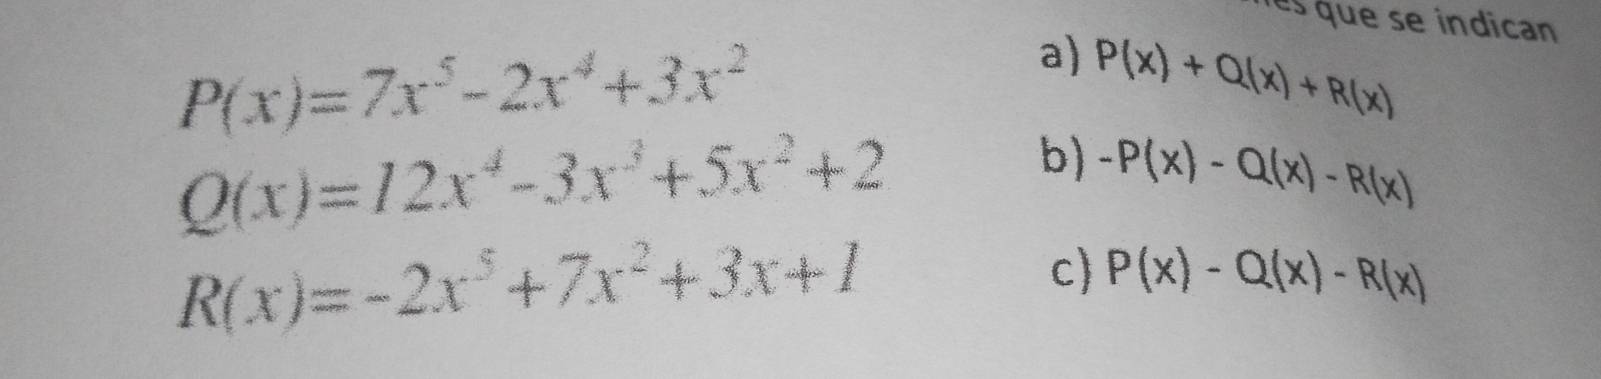 que se indican
P(x)=7x⁵-2x⁴+3x²
Q(x)=12x⁴-3x³+5x²+2
R(x)=-2x⁵+7x²+3x+1
a) P(x) + Q(x) + R(x)
b) -P(x) - Q(x) - R(x)
c) P(x) - Q(x) - R(x)